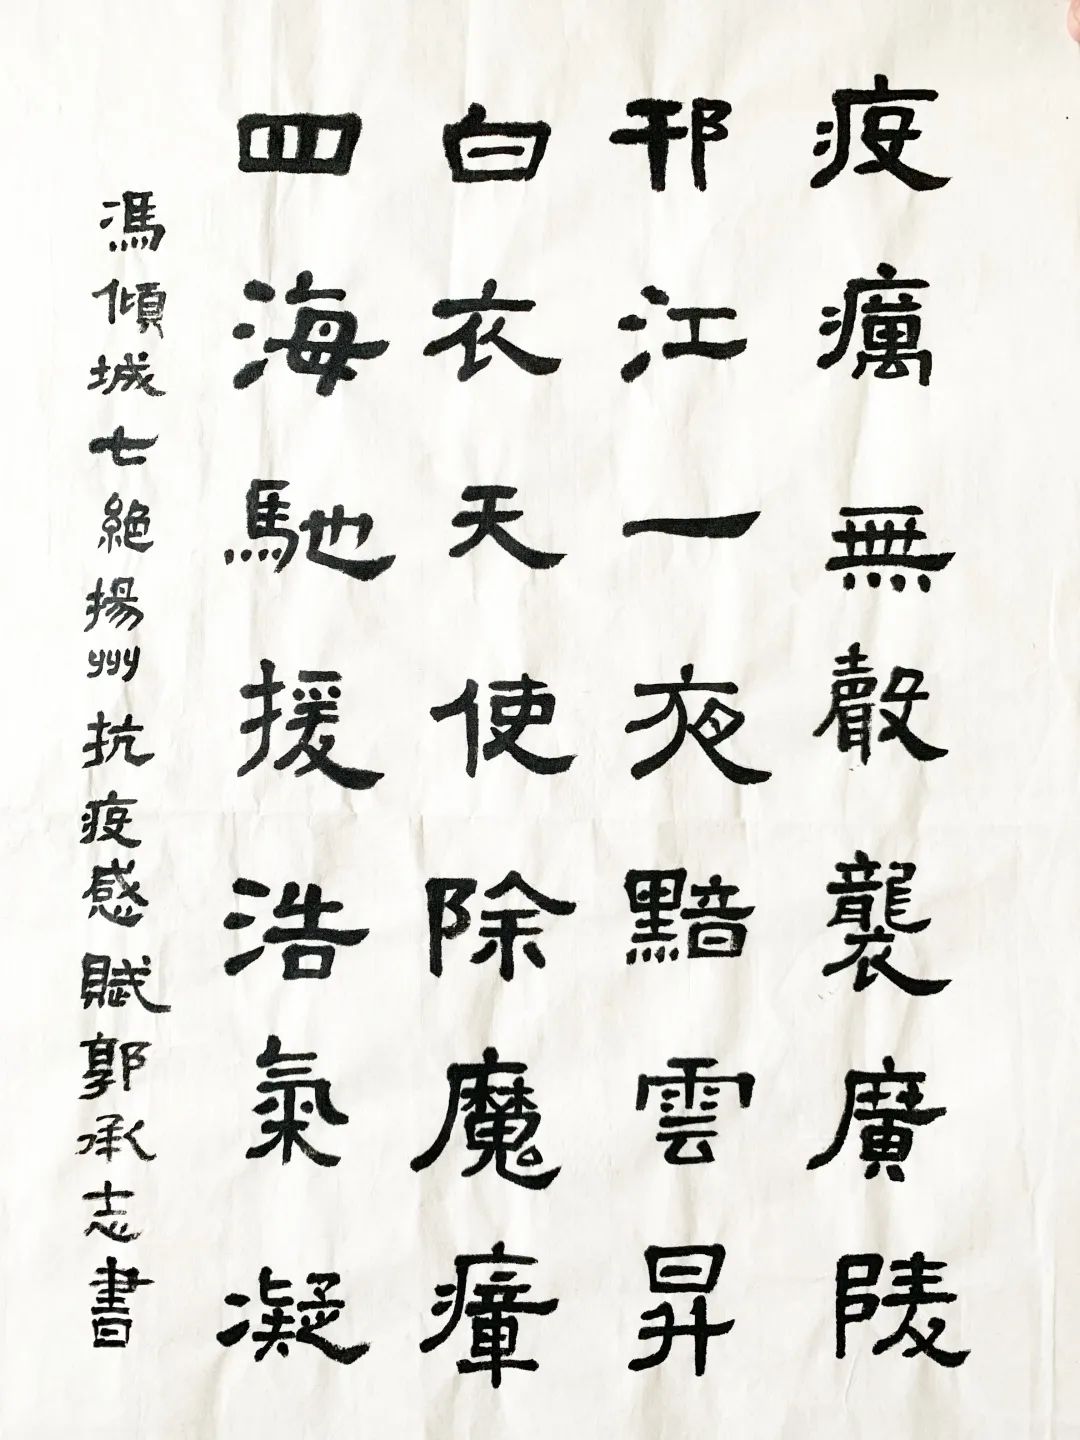 疫癘無聲襲廣陵
邗江一夜黯雲昇
白衣天使除魔瘴
四海馳援浩氣凝
馮傾城七絶揚州抗疫感賦郭承志書